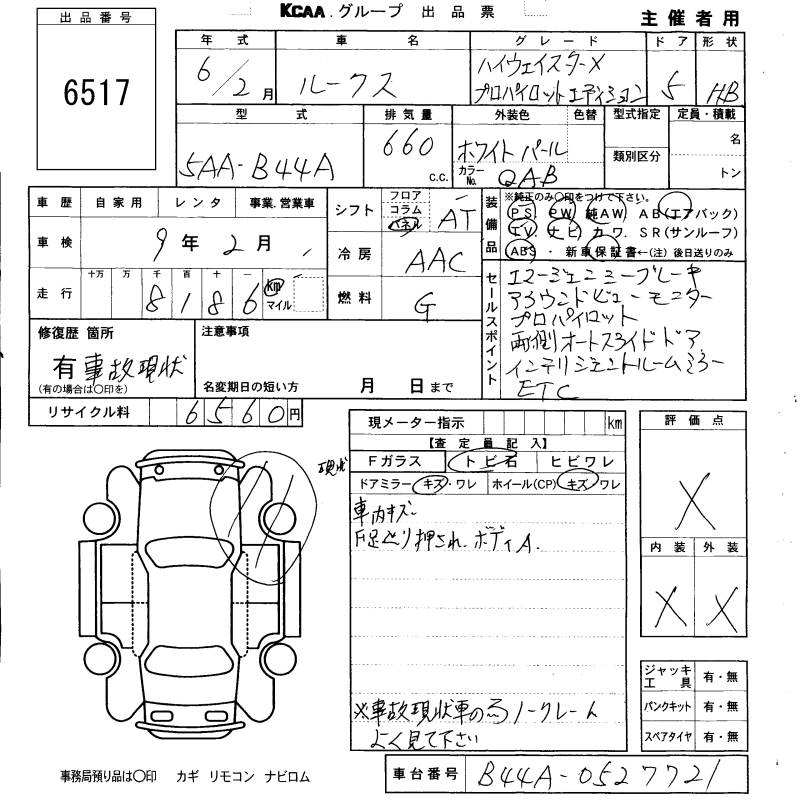 KCAA.グループ 出品票
主催者用
出品番号
6517
年式 車名 グレード ドア 形状
6/2月 ルークス ハイウェイスターX プロパイロットエディション 5 HB
型式 排気量 外装色 色替 型式指定 定員・積載
5AA-B44A 660 c.c. ホワイトパール 名
カラーNo. QAB 類別区分 トン
車歴 自家用 レンタ 事業.営業車
車検 9年2月
走行 十万 万 千 百 十 一
8 1 8 6 km マイル
シフト フロア コラム パネル AT
冷房 AAC
燃料 G
装備品 ※純正のみ○印をつけて下さい。
PS PW 純AW AB(エアバック)
TV ナビ カワ. SR(サンルーフ)
ABS ・ 新車保証書←(注)後日送りのみ
セールスポイント
エマージェンシーブレーキ
アラウンドビューモニター
プロパイロット
両側オートスライドドア
インテリジェントルームミラー
ETC
修復歴 箇所
有 事故現状
(有の場合は○印を)
注意事項
名変期日の短い方 月 日まで
リサイクル料 6560円
現メーター指示 km
【査定員記入】
Fガラス トビ石 ヒビワレ
ドアミラー キズ・ワレ ホイール(CP) キズ ワレ
車内キズ
F足廻り押され、ボディA.
※事故現状車の為ノークレーム
よく見て下さい
現状
評価点
X
内装 外装
X X
ジャッキ工具 有・無
パンクキット 有・無
スペアタイヤ 有・無
事務局預り品は○印 カギ リモコン ナビロム
車台番号 B44A-0527721